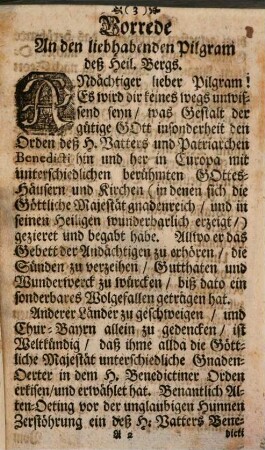 (3)
Vorrede
An den liebhabenden Pilgram
deß Heil. Bergs.
ANdächtiger lieber Pilgram!
Es wird dir keines wegs unwis-
send seyn / was Gestalt der
gütige GOtt insonderheit den
Orden deß H. Vatters und Patriarchen
Benedicti hin und her in Europa mit
unterschiedlichen berühmten GOttes-
Häusern und Kirchen (in denen sich die
Göttliche Majestät gnadenreich / und in
seinen Heiligen wunderbarlich erzeigt /)
gezieret und begabt habe. Allwo er das
Gebett der Andächtigen zu erhören / die
Sünden zu verzeihen / Gutthaten und
Wunderwerck zu würcken / biß dato ein
sonderbares Wolgefallen getragen hat.
Anderer Länder zu geschweigen / und
Chur-Bayrn allein zu gedencken / ist
Weltkündig / daß ihme allda die Gött-
liche Majestät unterschiedliche Gnaden-
Oerter in dem H. Benedictiner Orden
erkisen / und erwählet hat. Benantlich Al-
ten-Oeting vor der unglaubigen Hunnen
Zerstöhrung ein deß H. Vatters Bene-
A 2 dicti